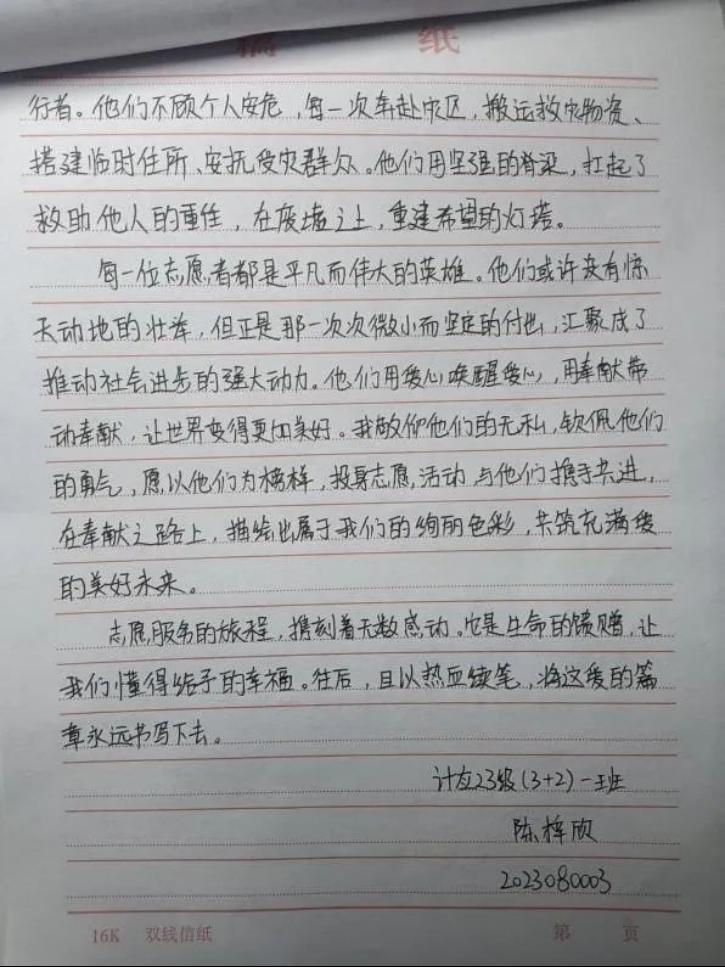 稿 纸
行者。他们不顾个人安危，每一次奔赴灾区，搬运救灾物资、
搭建临时住所、安抚受灾群众。他们用坚强的脊梁，扛起了
救助他人的重任，在废墟之上，重建希望的灯塔。
每一位志愿者都是平凡而伟大的英雄。他们或许没有惊
天动地的壮举，但正是那一次次微小而坚定的付出，汇聚成了
推动社会进步的强大动力。他们用爱心唤醒爱心，用奉献带
动奉献，让世界变得更加美好。我敬仰他们的无私，钦佩他们
的勇气，愿以他们为榜样，投身志愿活动，与他们携手共进，
在奉献之路上，描绘出属于我们的绚丽色彩，共筑充满爱
的美好未来。
志愿服务的旅程，镌刻着无数感动。它是生命的馈赠，让
我们懂得给予的幸福。往后，且以热血续笔，将这爱的篇
章永远书写下去。
计应23级(3+2)一班
陈梓欣
2023080003
16K 双线信纸
第 页